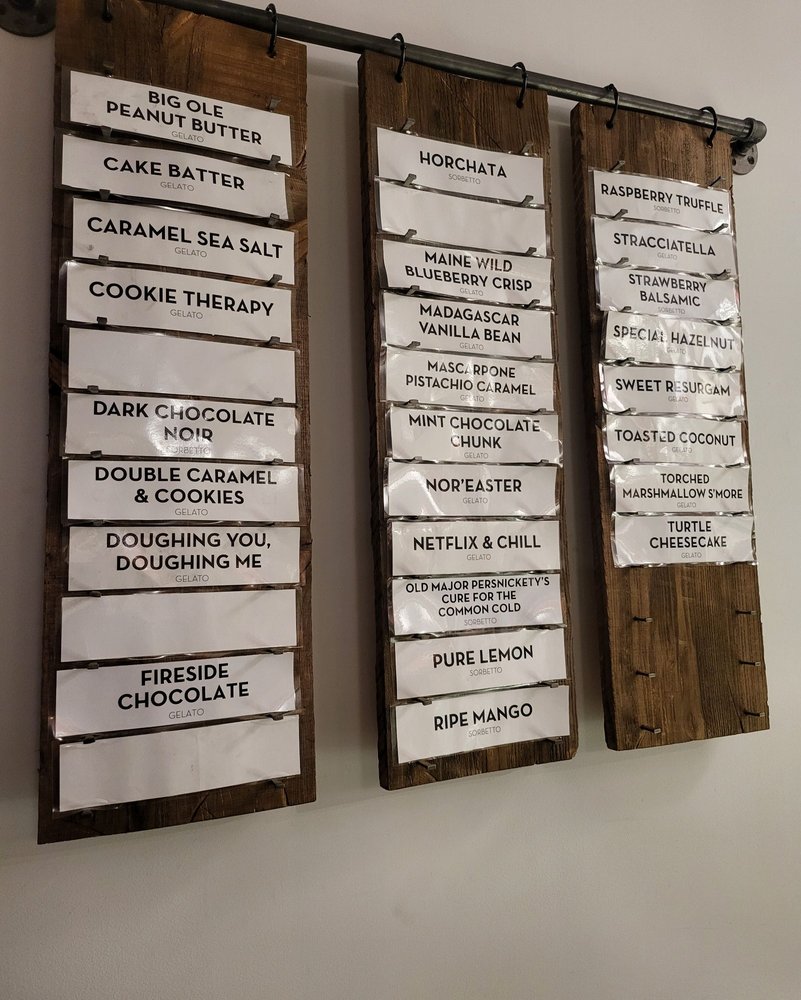 BIG OLE
PEANUT BUTTER
GELATO
CAKE BATTER
GELATO
CARAMEL SEA SALT
GELATO
COOKIE THERAPY
GELATO
DARK CHOCOLATE
NOIR
SORBETTO
DOUBLE CARAMEL
& COOKIES
GELATO
DOUGHING YOU,
DOUGHING ME
GELATO
FIRESIDE
CHOCOLATE
GELATO
HORCHATA
SORBETTO
MAINE WILD
BLUEBERRY CRISP
GELATO
MADAGASCAR
VANILLA BEAN
GELATO
MASCARPONE
PISTACHIO CARAMEL
GELATO
MINT CHOCOLATE
CHUNK
GELATO
NOR'EASTER
GELATO
NETFLIX & CHILL
GELATO
OLD MAJOR PERSNICKETY'S
CURE FOR THE
COMMON COLD
SORBETTO
PURE LEMON
SORBETTO
RIPE MANGO
SORBETTO
RASPBERRY TRUFFLE
SORBETTO
STRACCIATELLA
GELATO
STRAWBERRY
BALSAMIC
SORBETTO
SPECIAL HAZELNUT
GELATO
SWEET RESURGAM
GELATO
TOASTED COCONUT
GELATO
TORCHED
MARSHMALLOW S'MORE
GELATO
TURTLE
CHEESECAKE
GELATO